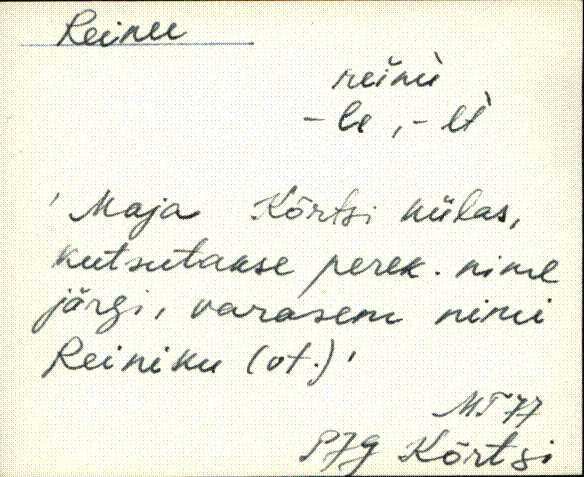 Reinu
reinù
-le, -lt̀
'Maja Kõrtsi külas,
kutsutakse perek. nime
järgi, varasem nimi
Reiniku (vt.)'
MT 77
PJg Kõrtsi